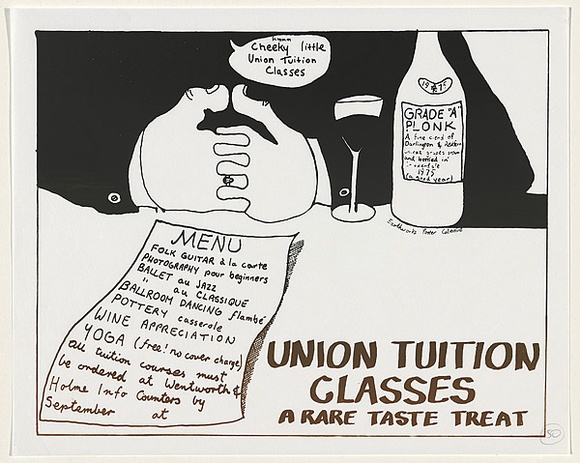 hmmm
Cheeky little
Union Tuition
Classes
1975
GRADE "A"
PLONK
A fine blend of
Darlington &
and bottled in
1975
(a good year)
Earthworks Poster Collective
MENU
FOLK GUITAR à la carte
PHOTOGRAPHY pour beginners
BALLET au JAZZ
" au CLASSIQUE
BALLROOM DANCING flambé
POTTERY casserole
WINE APPRECIATION
YOGA (free! no cover charge)
all tuition courses must
be ordered at Wentworth &
Holme Info Counters by
September at
UNION TUITION
CLASSES
A RARE TASTE TREAT
50